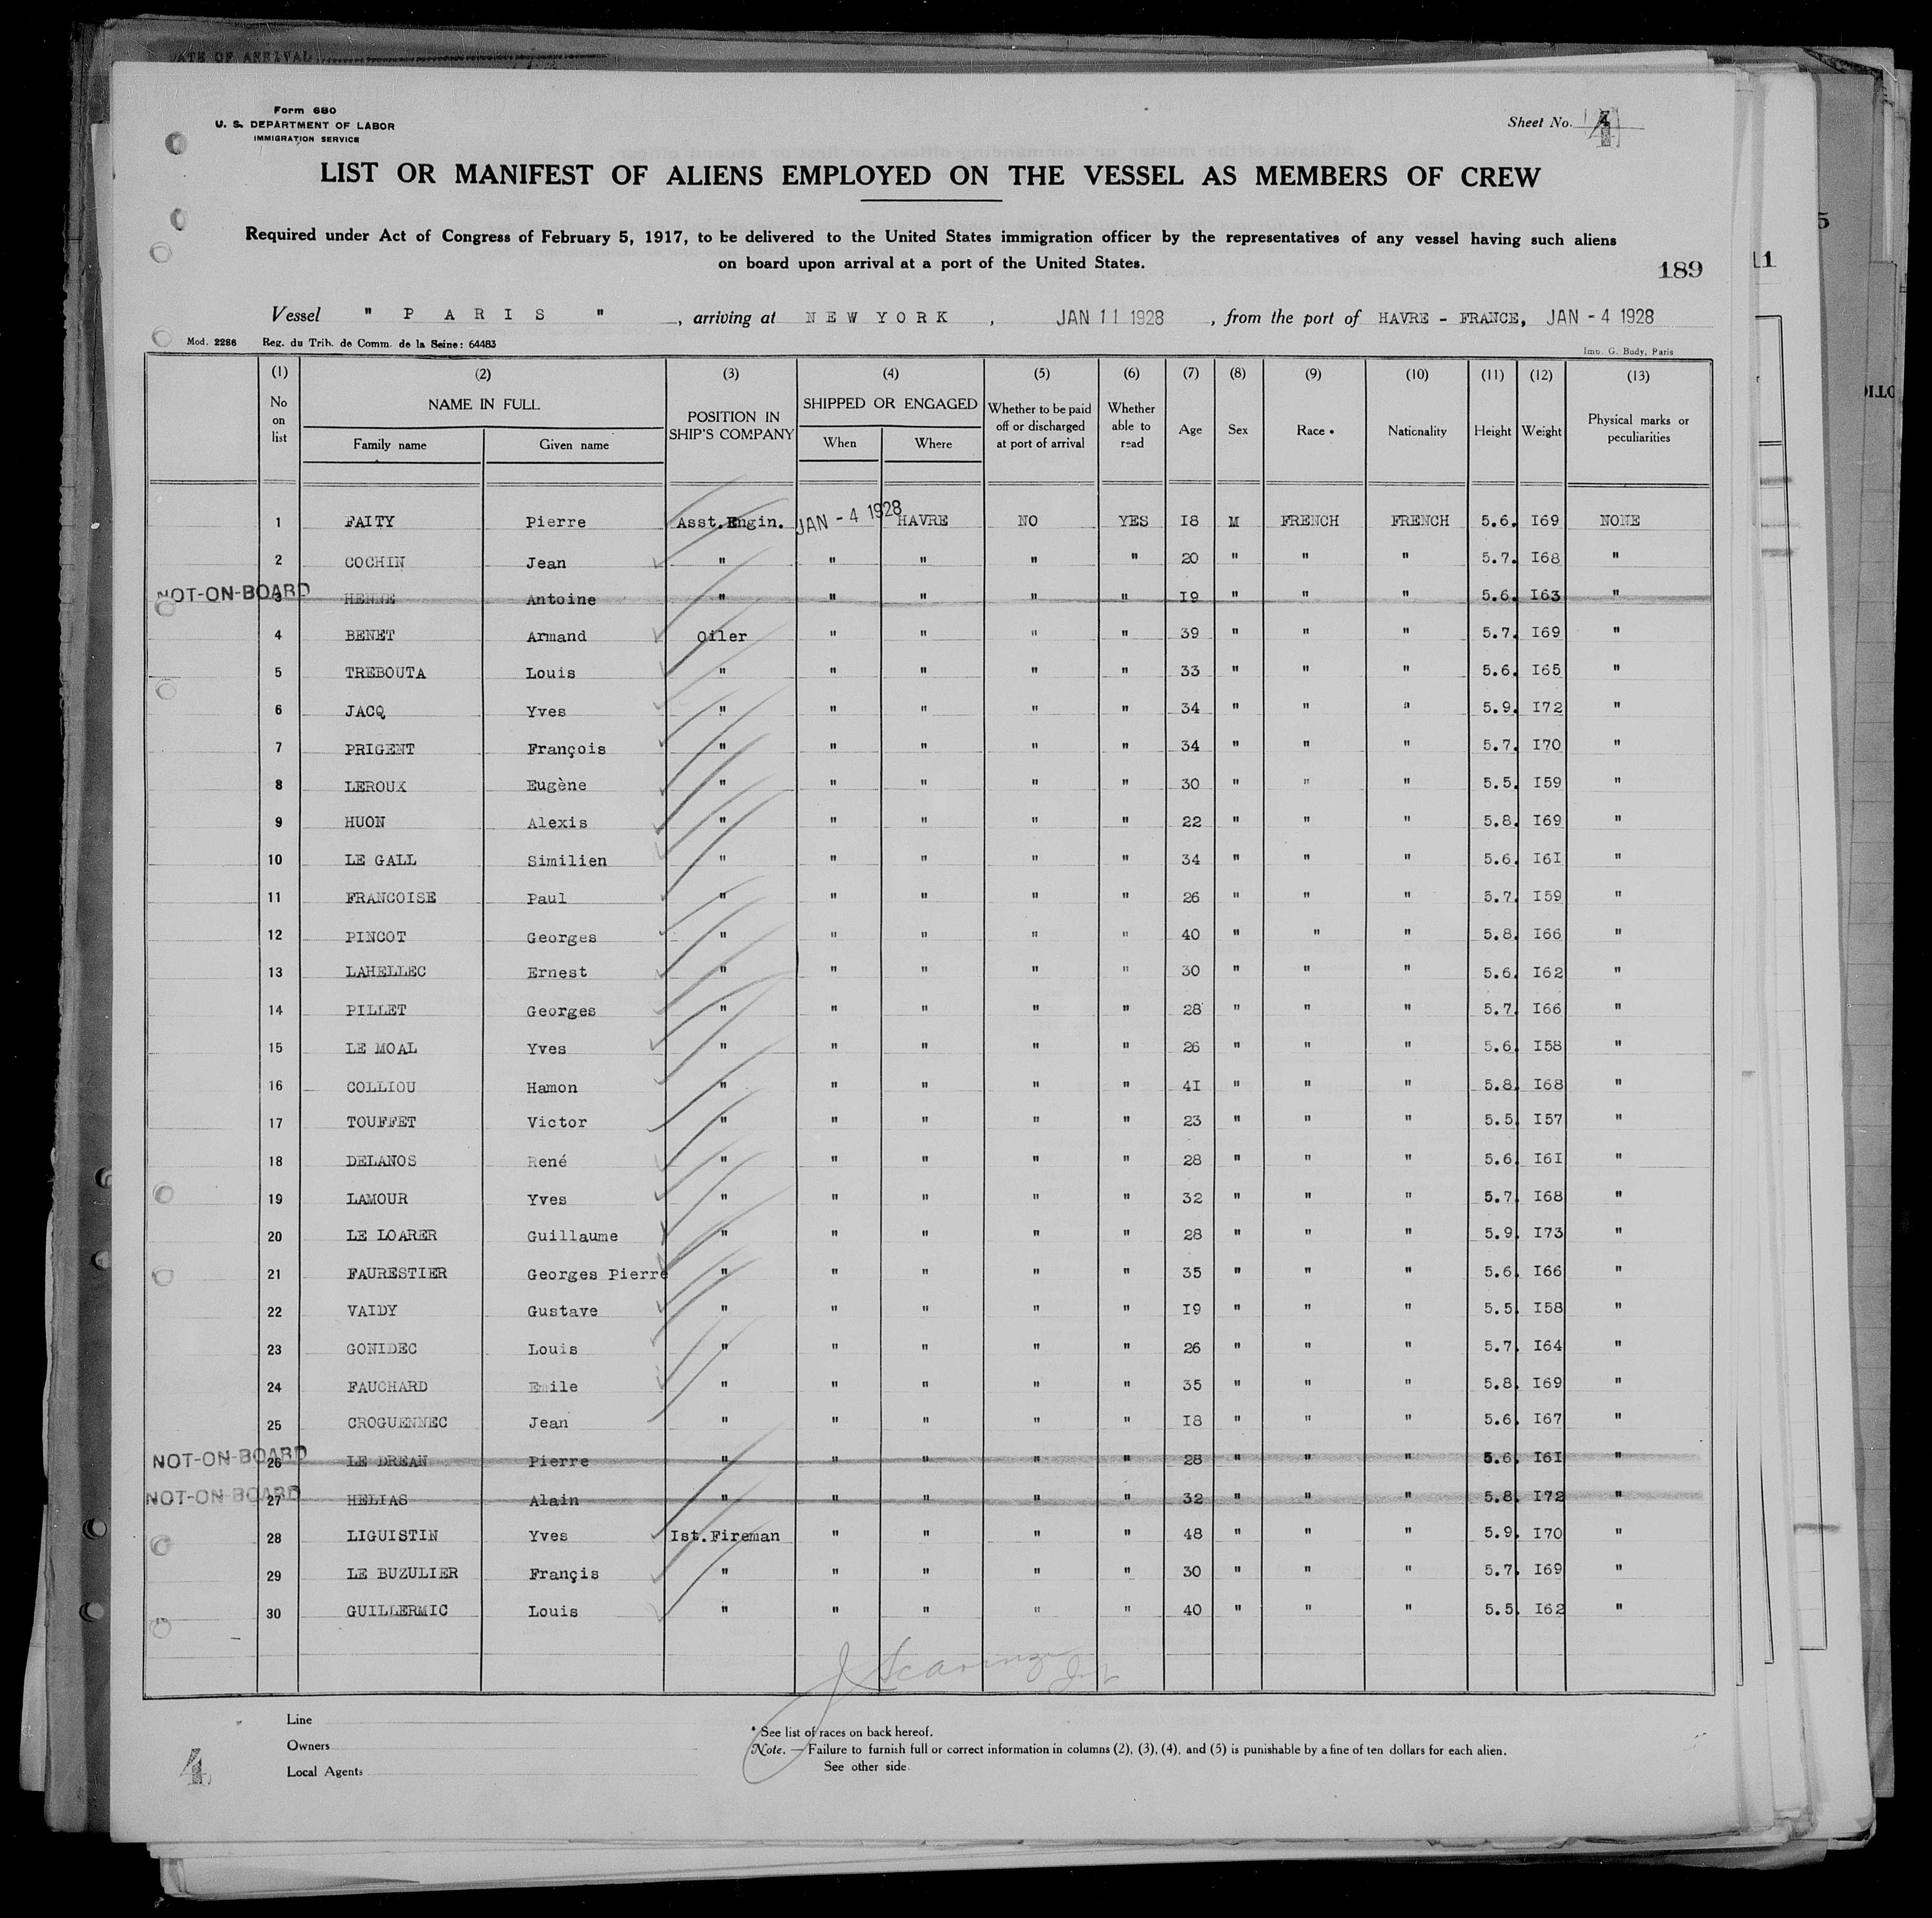 DATE OF ARRIVAL
Form 680
U. S. DEPARTMENT OF LABOR
IMMIGRATION SERVICE
Sheet No. 4
LIST OR MANIFEST OF ALIENS EMPLOYED ON THE VESSEL AS MEMBERS OF CREW
Required under Act of Congress of February 5, 1917, to be delivered to the United States immigration officer by the representatives of any vessel having such aliens
on board upon arrival at a port of the United States.
189
11
5
Vessel " P A R I S " , arriving at N E W Y O R K , JAN 11 1928 , from the port of HAVRE - FRANCE, JAN - 4 1928
Mod. 2286 Reg. du Trib. de Comm. de la Seine: 64483
Imp. G. Budy, Paris
(1) (2) (3) (4) (5) (6) (7) (8) (9) (10) (11) (12) (13)
No on list NAME IN FULL Family name Given name POSITION IN SHIP'S COMPANY SHIPPED OR ENGAGED When Where Whether to be paid off or discharged at port of arrival Whether able to read Age Sex Race * Nationality Height Weight Physical marks or peculiarities
1 FAITY Pierre Asst.Engin. JAN - 4 1928 HAVRE NO YES I8 M FRENCH FRENCH 5.6. I69 NONE
2 COCHIN Jean " " " " " 20 " " " 5.7. I68 "
NOT-ON-BOARD 3 HENNE Antoine " " " " " I9 " " " 5.6. I63 "
4 BENET Armand Oiler " " " " 39 " " " 5.7. I69 "
5 TREBOUTA Louis " " " " " 33 " " " 5.6. I65 "
6 JACQ Yves " " " " " 34 " " " 5.9. I72 "
7 PRIGENT François " " " " " 34 " " " 5.7. I70 "
8 LEROUX Eugène " " " " " 30 " " " 5.5. I59 "
9 HUON Alexis " " " " " 22 " " " 5.8. I69 "
10 LE GALL Similien " " " " " 34 " " " 5.6. I6I "
11 FRANCOISE Paul " " " " " 26 " " " 5.7. I59 "
12 PINCOT Georges " " " " " 40 " " " 5.8. I66 "
13 LAHELLEC Ernest " " " " " 30 " " " 5.6. I62 "
14 PILLET Georges " " " " " 28 " " " 5.7. I66 "
15 LE MOAL Yves " " " " " 26 " " " 5.6. I58 "
16 COLLIOU Hamon " " " " " 4I " " " 5.8. I68 "
17 TOUFFET Victor " " " " " 23 " " " 5.5. I57 "
18 DELANOS René " " " " " 28 " " " 5.6. I6I "
19 LAMOUR Yves " " " " " 32 " " " 5.7. I68 "
20 LE LOARER Guillaume " " " " " 28 " " " 5.9. I73 "
21 FAURESTIER Georges Pierre " " " " " 35 " " " 5.6. I66 "
22 VAIDY Gustave " " " " " I9 " " " 5.5. I58 "
23 GONIDEC Louis " " " " " 26 " " " 5.7. I64 "
24 FAUCHARD Emile " " " " " 35 " " " 5.8. I69 "
25 CROGUENNEC Jean " " " " " I8 " " " 5.6. I67 "
NOT-ON-BOARD 26 LE DREAN Pierre " " " " " 28 " " " 5.6. I6I "
NOT-ON-BOARD 27 HELIAS Alain " " " " " 32 " " " 5.8. I72 "
28 LIGUISTIN Yves Ist.Fireman " " " " 48 " " " 5.9. I70 "
29 LE BUZULIER Françis " " " " " 30 " " " 5.7. I69 "
30 GUILLERMIC Louis " " " " " 40 " " " 5.5. I62 "
Line
Owners
Local Agents
4
* See list of races on back hereof.
Note. — Failure to furnish full or correct information in columns (2), (3), (4), and (5) is punishable by a fine of ten dollars for each alien.
See other side.